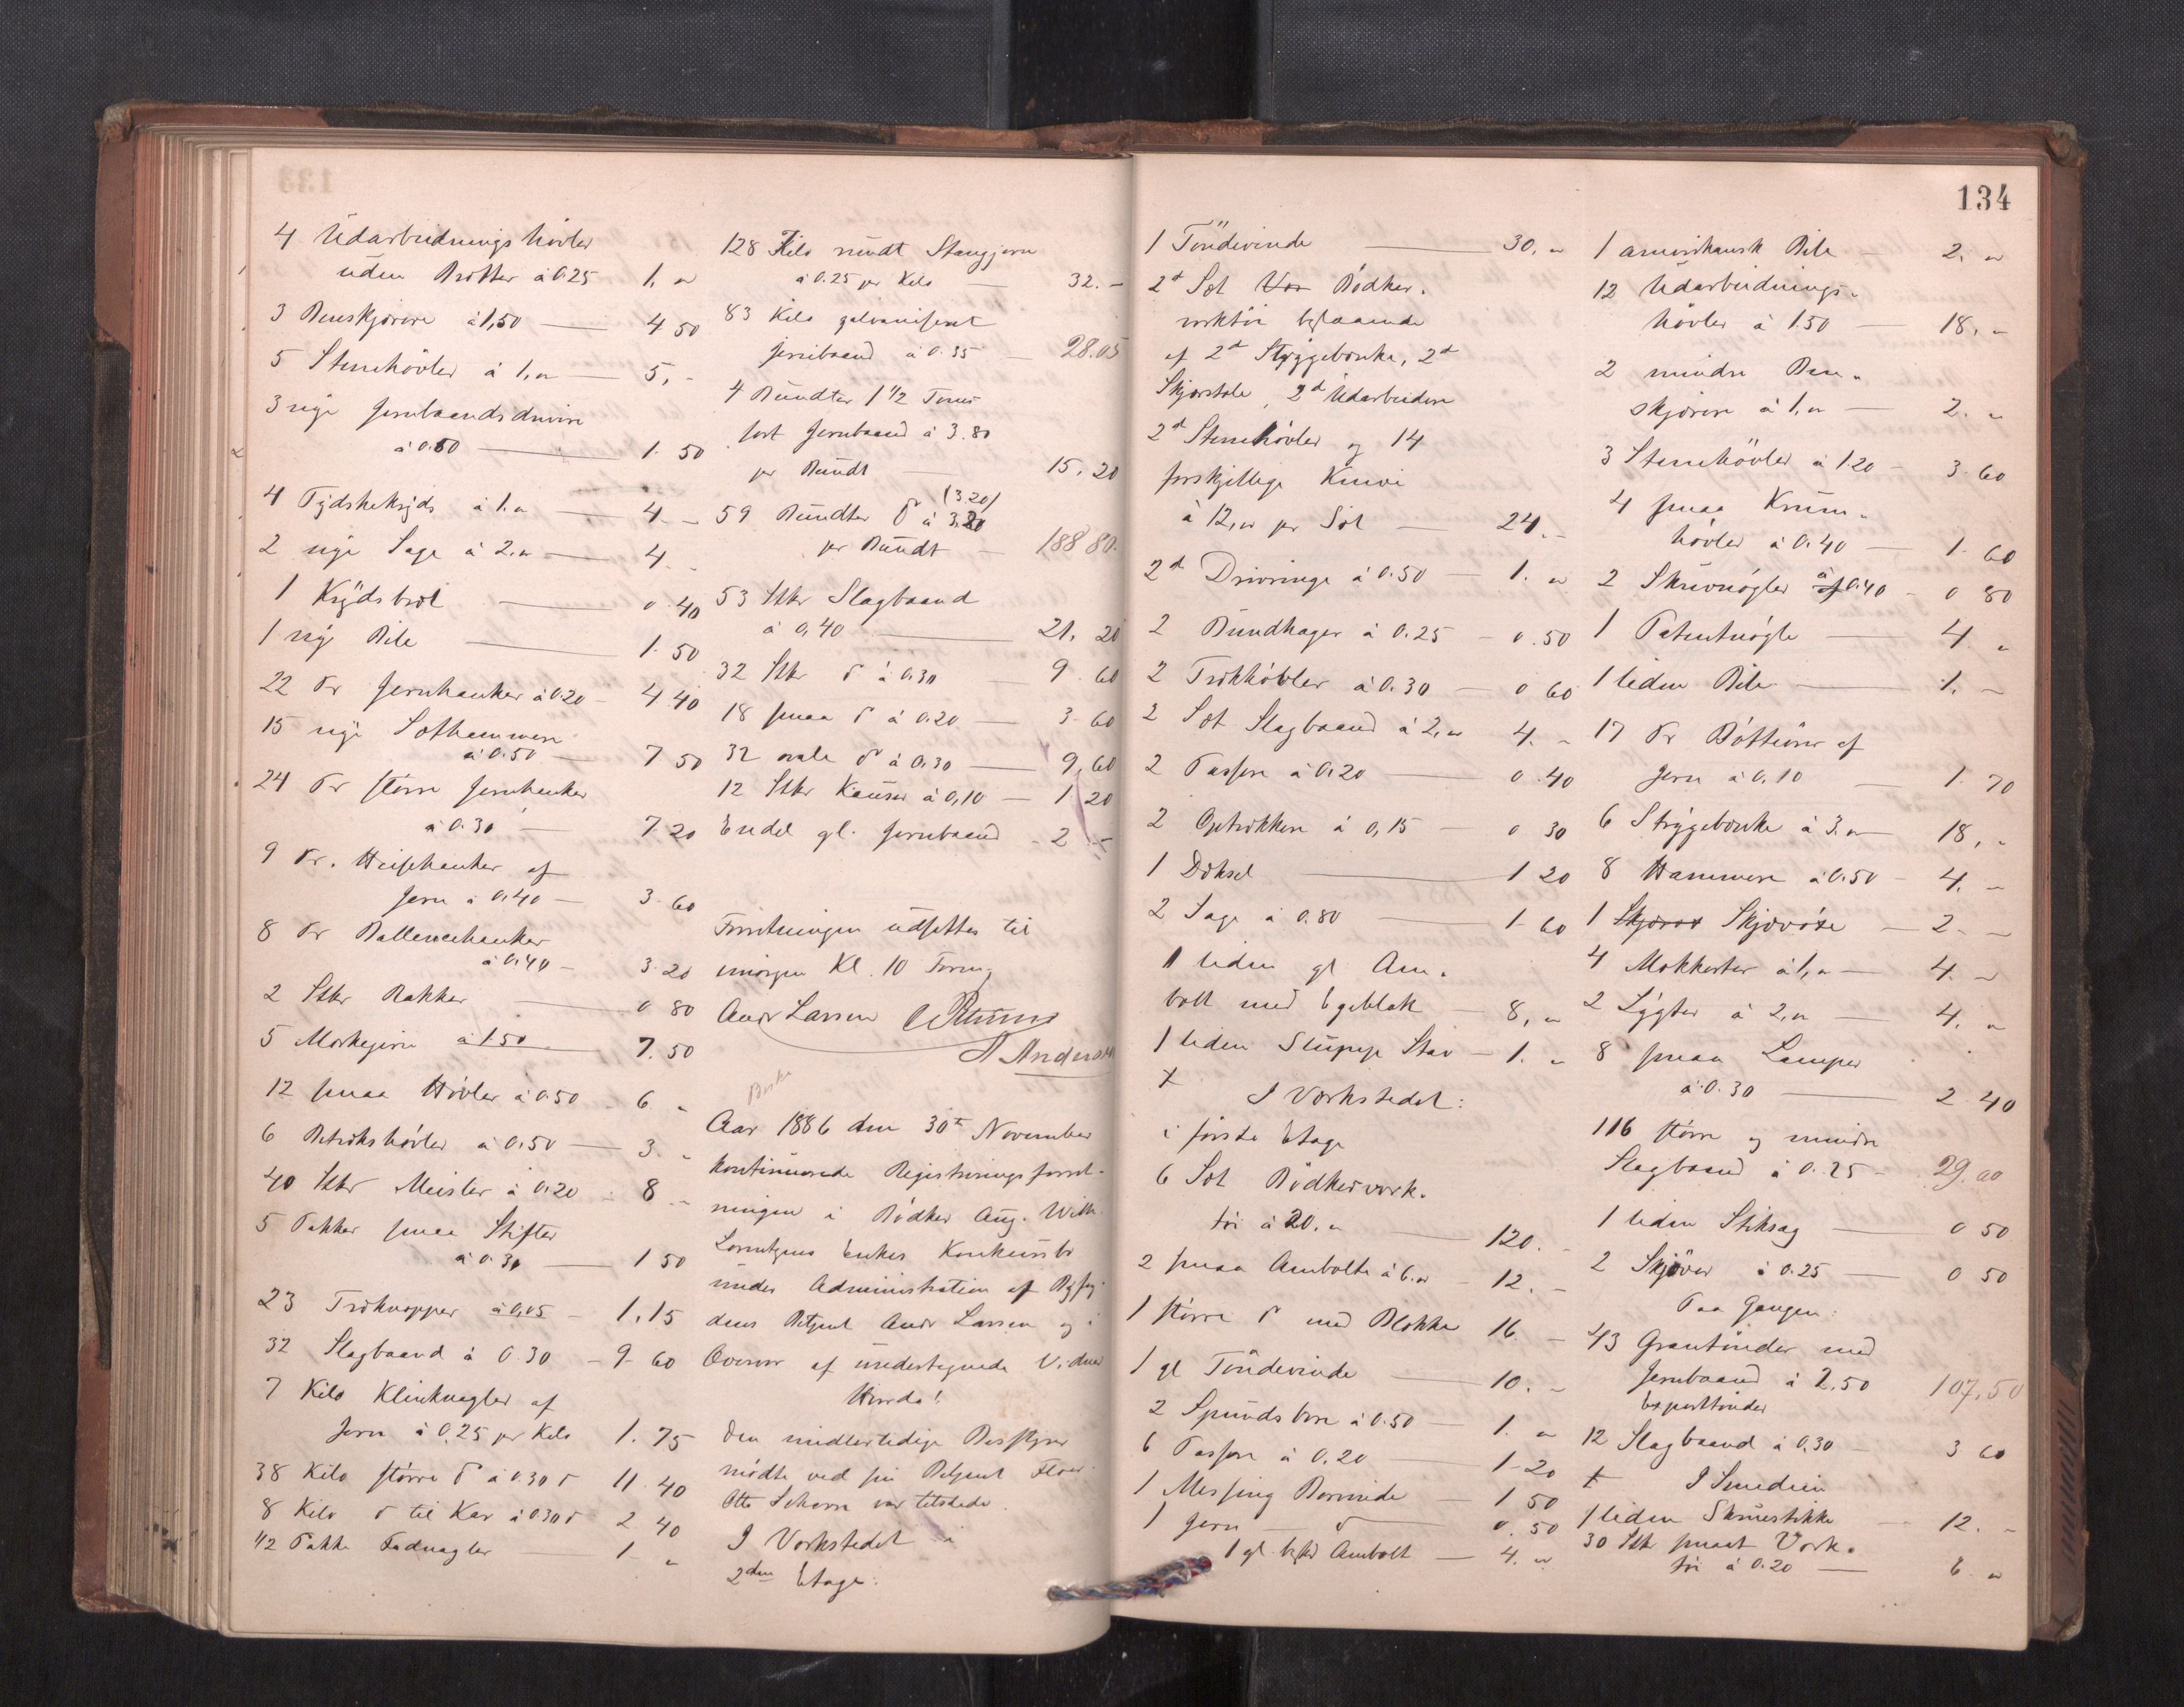 4 Udarbeidningshövler
uden Brötter à 0.25 1. "
3 Benskjærere à 1,50 4 50
5 Stenehövler à 1, " 5, "
3 nye Jernbaandsdrivere
à 0.50 1. 50
4 à 1. " 4. "
2 nye Sage à 2. " 4. "
1 Krydsbræt 0.40
1 ny Bile 1. 50
22 Pr Jernhanker à 0.20 4 40
15 nye Sethammere
à 0.50 7 50
24 Pr större Jernhanker
à 0.30 7.20
9 Pr. Heisehanker af
Jern à 0,40 3.60
8 Pr Ballensehanker
à 0.40 3.20
2 Stkr Bakker 0 80
5 Merkejern à 1.50 7.50
12 smaa Hövler à 0.50 6. "
6 Betrækshövler à 0.50 3. "
40 Stkr Meisler à 0.20 8 "
5 Pakker smaa Stifter
à 0.30 1 50
23 Træknopper à 0,05 1.15
32 Slagbaand à 0.30 9.60
7 Kilo Klinknagler af
Jern à 0,25 pr Kilo 1.75
38 Kilo större do à 0.30 do 11.40
8 Kilo do til Kar à 0.30 do 2 40
1/2 Pakke Ladnagler 1 "
128 Kilo rundt Stangjern
à 0.25 pr Kilo 32. "
83 Kilo galvaniseret
Jernbaand à 0.35 28.05
4 Bundter 1 1/2 Toms
sort Jernbaand à 3.80
pr Bundt 15.20
(3.20)
59 Bundter do à 3.20
pr Bundt 188 80.
53 Stkr Slagbaand
à 0,40 21. 20
32 Stkr do à 0.30 9.60
18 smaa do à 0.20 3.60
32 ovale do à 0.30 9,60
12 Stkr Kauser à 0,10 1.20
Endel gl. Jernbaand 2 "
Forretningen udsettes til
imorgen Kl. 10 Form.
Andr Larsen
A Andersen
Aar 1886 den 30te November
kontinuerede Registreringsforret-
ningen i Bödker Aug. Wilh.
Lorentzens Enkes Konkursbo
under Administration af Byfog-
dens Betjent Andr Larsen og i
Overvær af undertegnede Vidner
Hvorda!
Den midlertidige Bestyrer
mödte ved sin Betjent
Otto var tilstede.
I Værkstedet i
2den Etage:
134
1 Töndevinde 30. "
2de Sæt Bödker-
værktöi bestaaende
af 2de Stryggebænke, 2de
Skjærstole, 2de Udarbeidere
2de Stenehövler og 14
forskjellige Knive
à 12, " pr Sæt 24. "
2de Drivringe à 0.50 1. "
2 Bundhager à 0.25 0.50
2 Trækhövler à 0.30 0 60
2 Sæt Slagbaand à 2, " 4. "
2 Passere à 0.20 0.40
2 Optrækkere à 0,15 0 30
1 Döksel 1 20
2 Sage à 0.80 1.60
1 liden gl Am-
bolt med Egeblok 8, "
1 liden Slupe Stav 1. "
I Værkstedet:
i förste Etage
6 Sæt Bödkerværk-
töi à 20. " 120. "
2 smaa Ambolte à 6. " 12. "
1 större do med Blokke 16. "
1 gl Töndevinde 10. "
2 Spundsbore à 0.50 1. "
6 Passere à 0.20 1.20
1 Messing Borvinde 1 50
1 Jern do 0.50
1 gl Ambolt 4. "
1 amerikansk Bile 2. "
12 Udarbeidnings-
hövler à 1.50 18. "
2 mindre Ben-
skjærere à 1. " 2. "
3 Stenehövler à 1.20 3.60
4 smaa Krum-
hövler à 0.40 1.60
2 Skruenögler à 0.40 0 80
1 Patentnögle 4. "
1 liden Bile 1. "
17 Pr Böttöier af
Jern à 0,10 1.70
6 Strygebænke à 3. " 18, "
8 Hammere à 0.50 4. "
1 Skjæröxe 2. "
4 Mokkerter à 1, " 4. "
2 Lygter à 2, " 4. "
8 smaa Lamper
à 0.30 2.40
116 större og mindre
Slagbaand à 0.25 29.00
1 liden Stiksag 0 50
2 Skjöver à 0.25 0 50
Paa Gangen:
43 Grantönder med
Jernbaand à 2,50 107,50
Exporttönder
12 Slagbaand à 0.30 3 60
I Smedien
1 liden Skruestikke 12. "
30 Stkr smaat Værk-
töi à 0.20 6 "